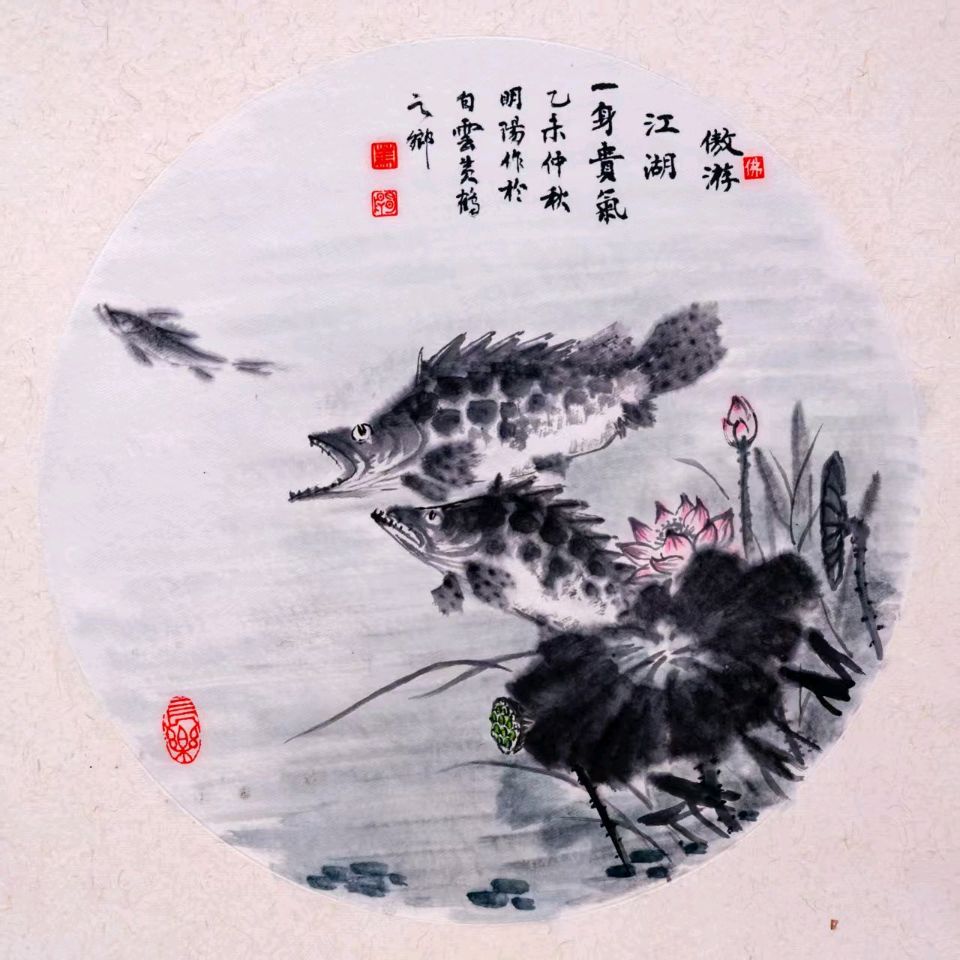 傲游
江湖
一身貴氣
乙未仲秋
明陽作於
白雲黃鶴
之鄉
佛